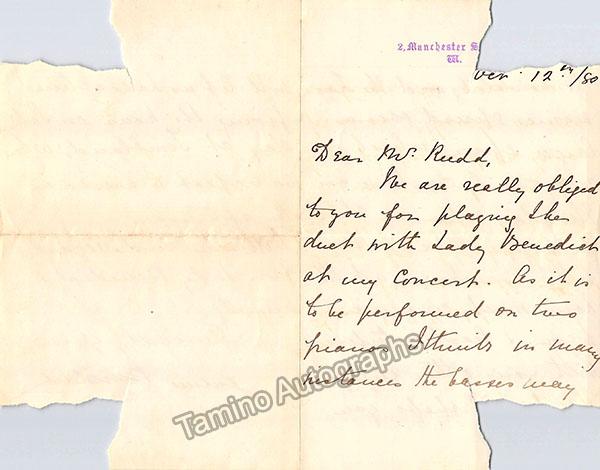 2, Manchester S
W.
ver. 12th/80
Dear Mr. Rudd,
We are really obliged
to you for playing the
duet with Lady Benedict
at my Concert. As it is
to be performed on two
pianos I think in many
instances the basses may
Tamino Autographs